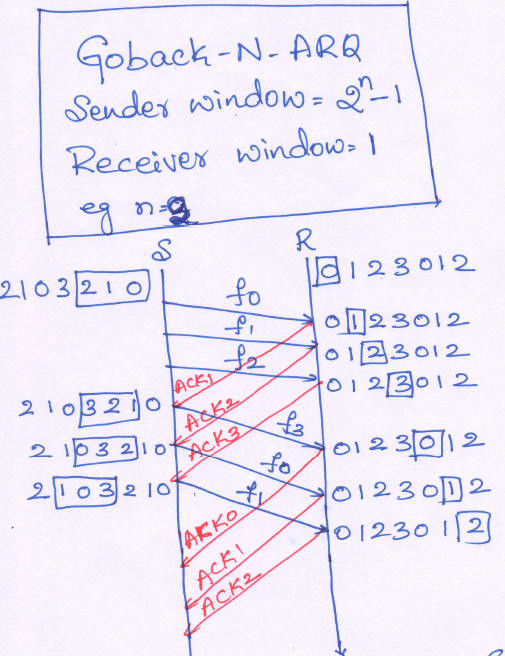 Goback-N-ARQ
Sender window = 2ⁿ-1
Receiver window = 1
eg n=2
S R
0123012
2103210
f0
0123012
f1
0123012
f2
0123012
ACK1
2103210
ACK2
f3
2103210
ACK3
0123012
f0
2103210
f1
0123012
0123012
ACK0
ACK1
ACK2